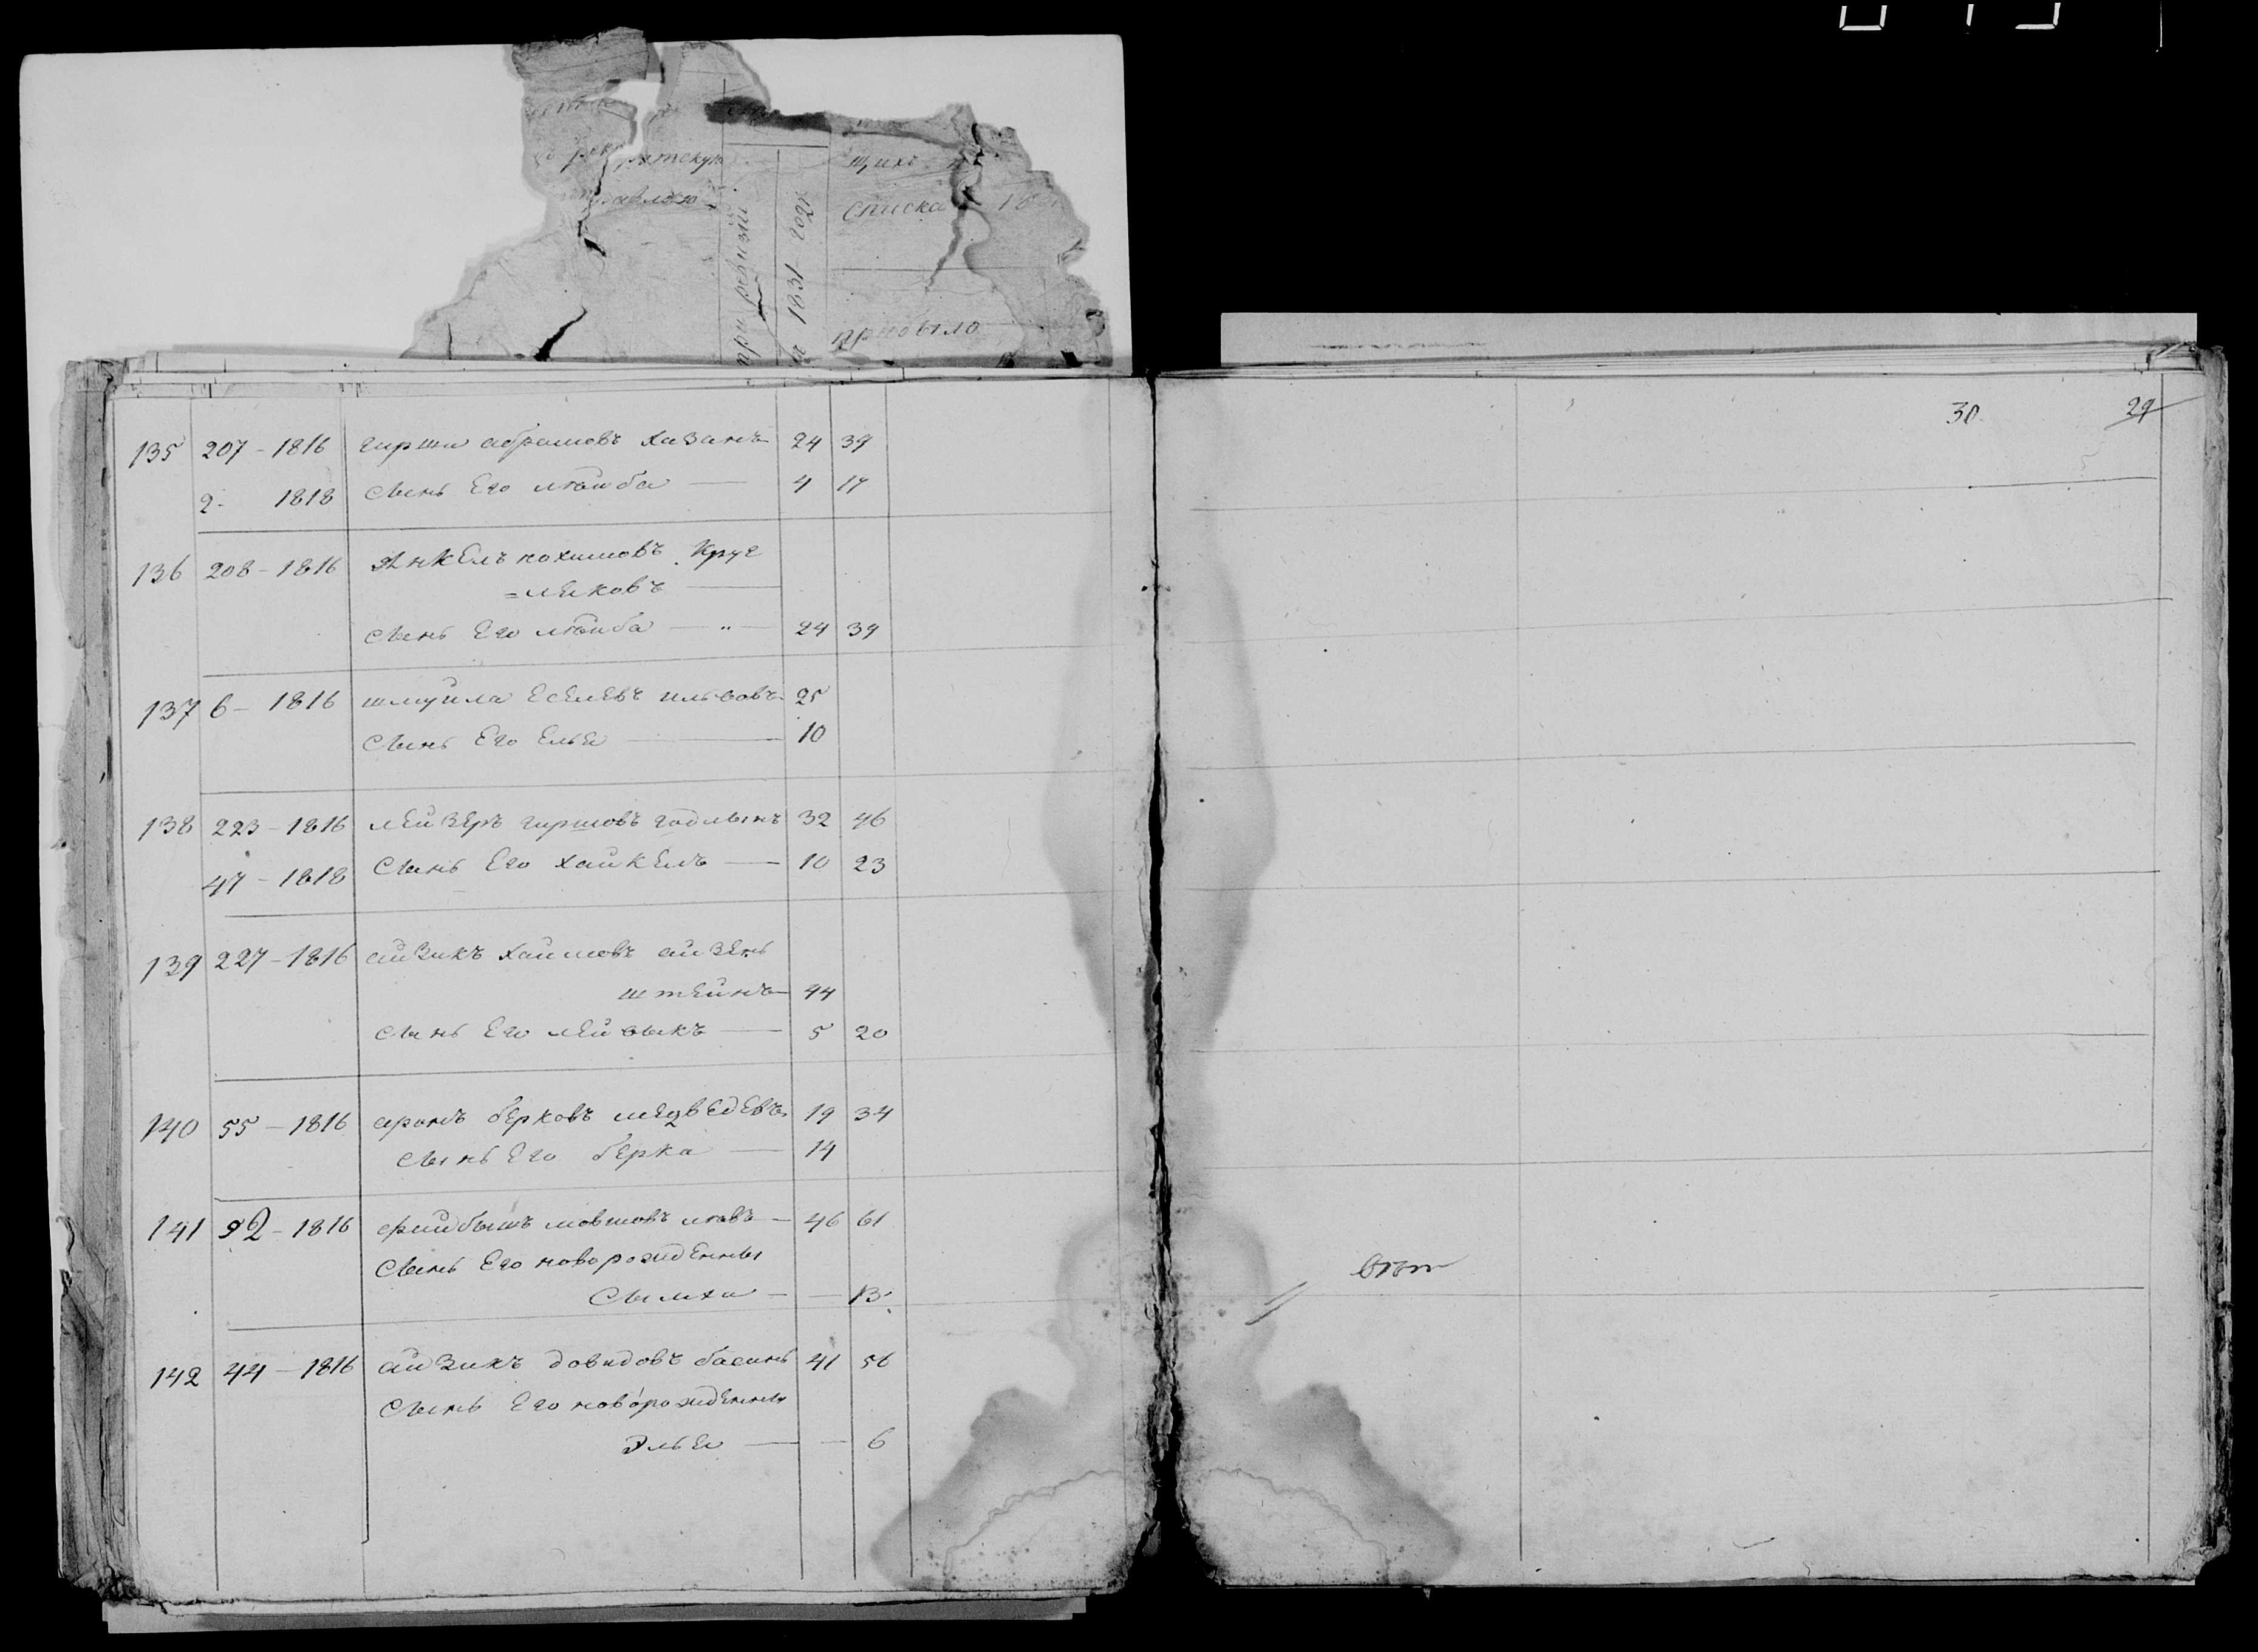 щихъ
списка
при ревизии
1831 году
прибыло
30 29
135 207 - 1816 гирша абрамовъ хазанъ 24 39
2 - 1818 сынъ Его лѣйба — 4 17
136 208 - 1816 Янкель нохимовъ Круг
=ляковъ —
сынъ Его лѣйба — " — 24 39
137 6 - 1816 шмуйла Еселевъ ильвовъ 25
сынъ Его Елья — 10
138 223 - 1816 лейзеръ гиршовъ годлынъ 32 46
47 - 1818 сынъ Его хайкель — 10 23
139 227 - 1816 айзикъ хаимовъ айзень
штейнъ — 44
сынъ Его лейвыкъ — 5 20
140 55 - 1816 аронъ берковъ медведевъ 19 34
сынъ Его берка — 14
141 92 - 1816 фрайбышъ мовшовъ левъ — 46 61
сынъ Его новорожденны
Сымха — — 13
142 44 - 1816 айзикъ довидовъ басинъ 41 56
сынъ Его новорожденны
Элья — — 6